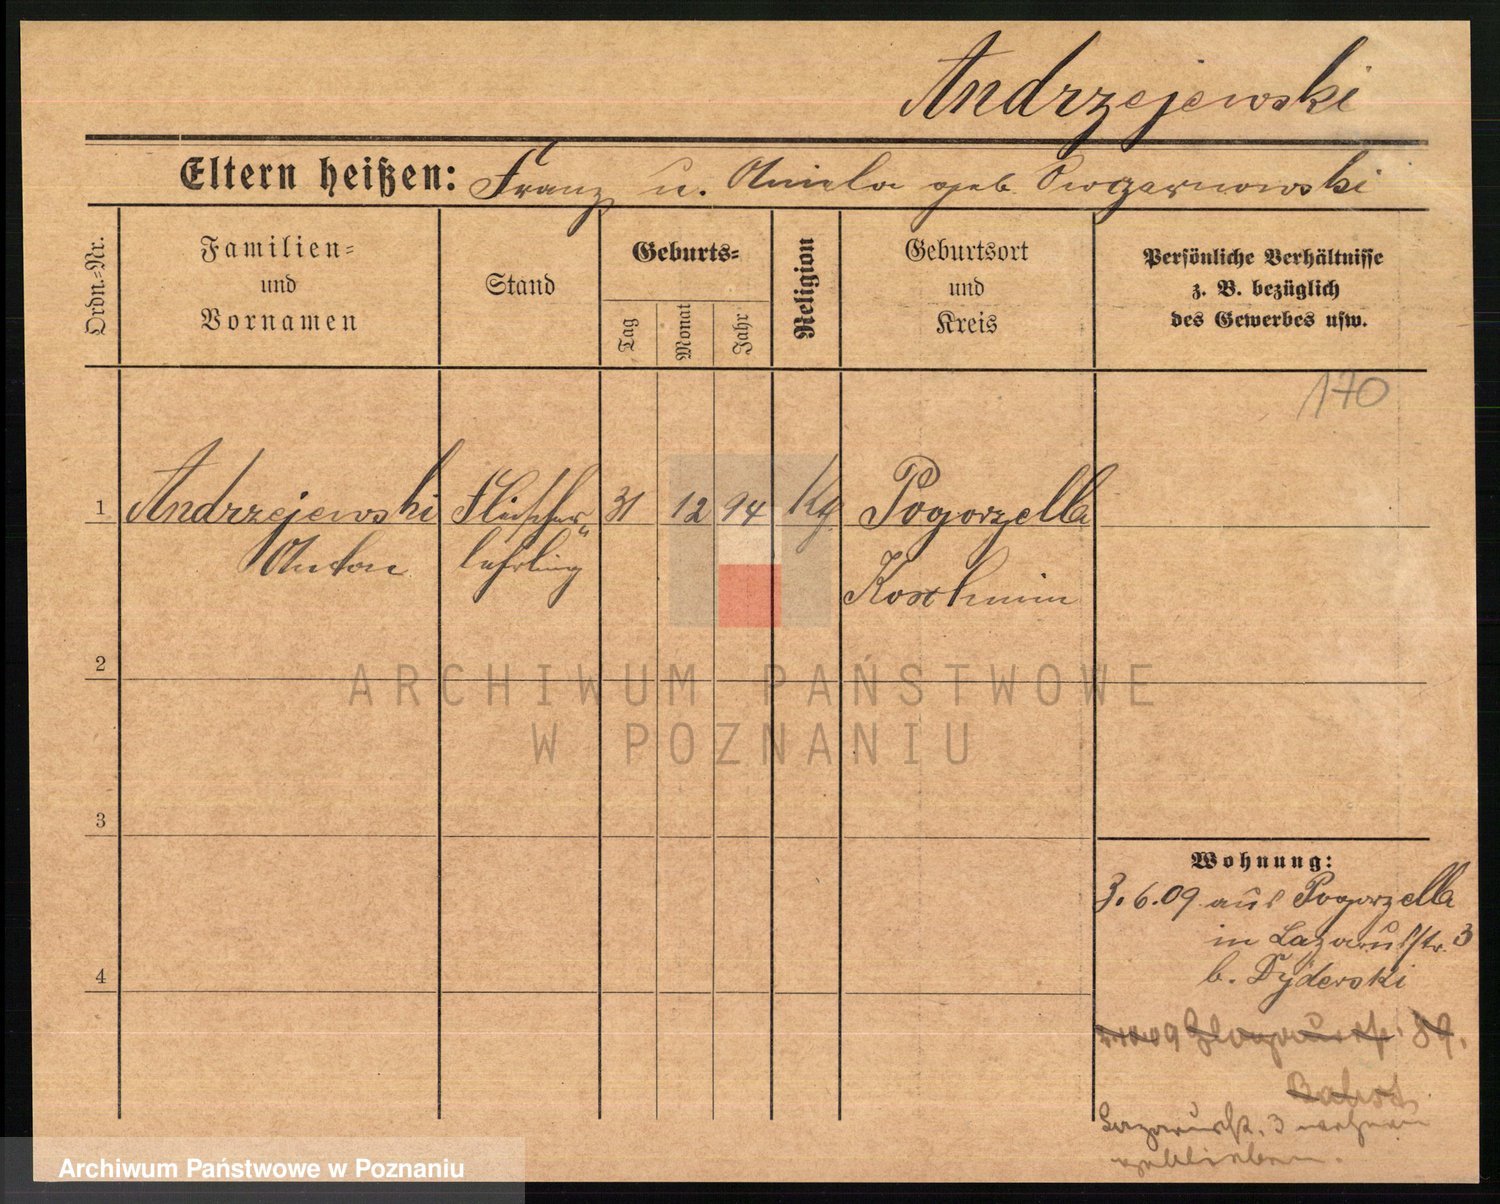 Andrzejewski
Eltern heißen: Franz u. Aniela geb. Owczarnowski
Ordn.-Nr.
Familien-
und
Vornamen
Stand
Geburts-
Tag
Monat
Jahr
Religion
Geburtsort
und
Kreis
Persönliche Verhältnisse
z. B. bezüglich
des Gewerbes usw.
170
1 Andrzejewski Fleischer- 31 12 94 Kg. Pogorzella
Anton lehrling Koschmin
2
3
4
Wohnung:
3.6.09 aus Pogorzella
in Lazarusstr. 3
b. Tyderski
09 Glogauerstr. 39.
Lazarusstr. 3 wohnen
geblieben.
ARCHIWUM PAŃSTWOWE
W POZNANIU
Archiwum Państwowe w Poznaniu